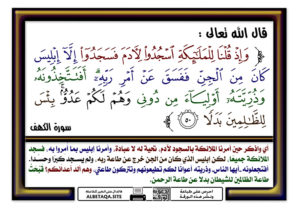 قال الله تعالى :
﴿ وَإِذْ قُلْنَا لِلْمَلَـٰٓئِكَةِ ٱسْجُدُوا۟ لِـَٔادَمَ فَسَجَدُوٓا۟ إِلَّآ إِبْلِيسَ
كَانَ مِنَ ٱلْجِنِّ فَفَسَقَ عَنْ أَمْرِ رَبِّهِۦٓ ۗ أَفَتَتَّخِذُونَهُۥ
وَذُرِّيَّتَهُۥٓ أَوْلِيَآءَ مِن دُونِى وَهُمْ لَكُمْ عَدُوٌّۢ ۚ بِئْسَ
لِلظَّـٰلِمِينَ بَدَلًا ٥٠ ﴾
سورة الكهف
أي واذكر حين أمرنا الملائكة بالسجود لآدم، تحية له لا عبادة، وأمرنا إبليس بما أمروا به، فسجد
الملائكة جميعا، لكن إبليس الذي كان من الجن خرج عن طاعة ربه، ولم يسجد كبرا وحسدا.
أفتجعلونه -أيها الناس- وذريته أعوانا لكم تطيعونهم وتتركون طاعتي، وهم ألد أعدائكم؟ قبحت
طاعة الظالمين للشيطان بدلا عن طاعة الرحمن.
ALBETAQA.SITE